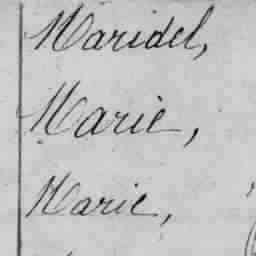 Maridel,
Marie,
Marie,